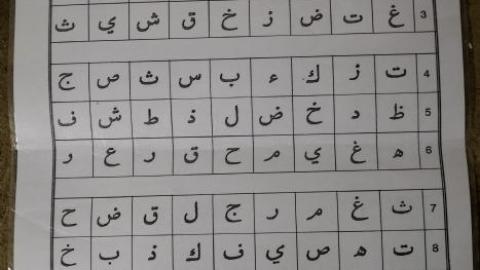 3 غ ت ض ز خ ق ش ي ث
4 ت ز ك ء ب س ث ص ج
5 ظ د خ ض ل ذ ط ش ف
6 ه غ ي م ح ق ر ع ر
7 ث غ م ر ج ل ق ض ح
8 ت ه ص ي ف ك ذ ب خ